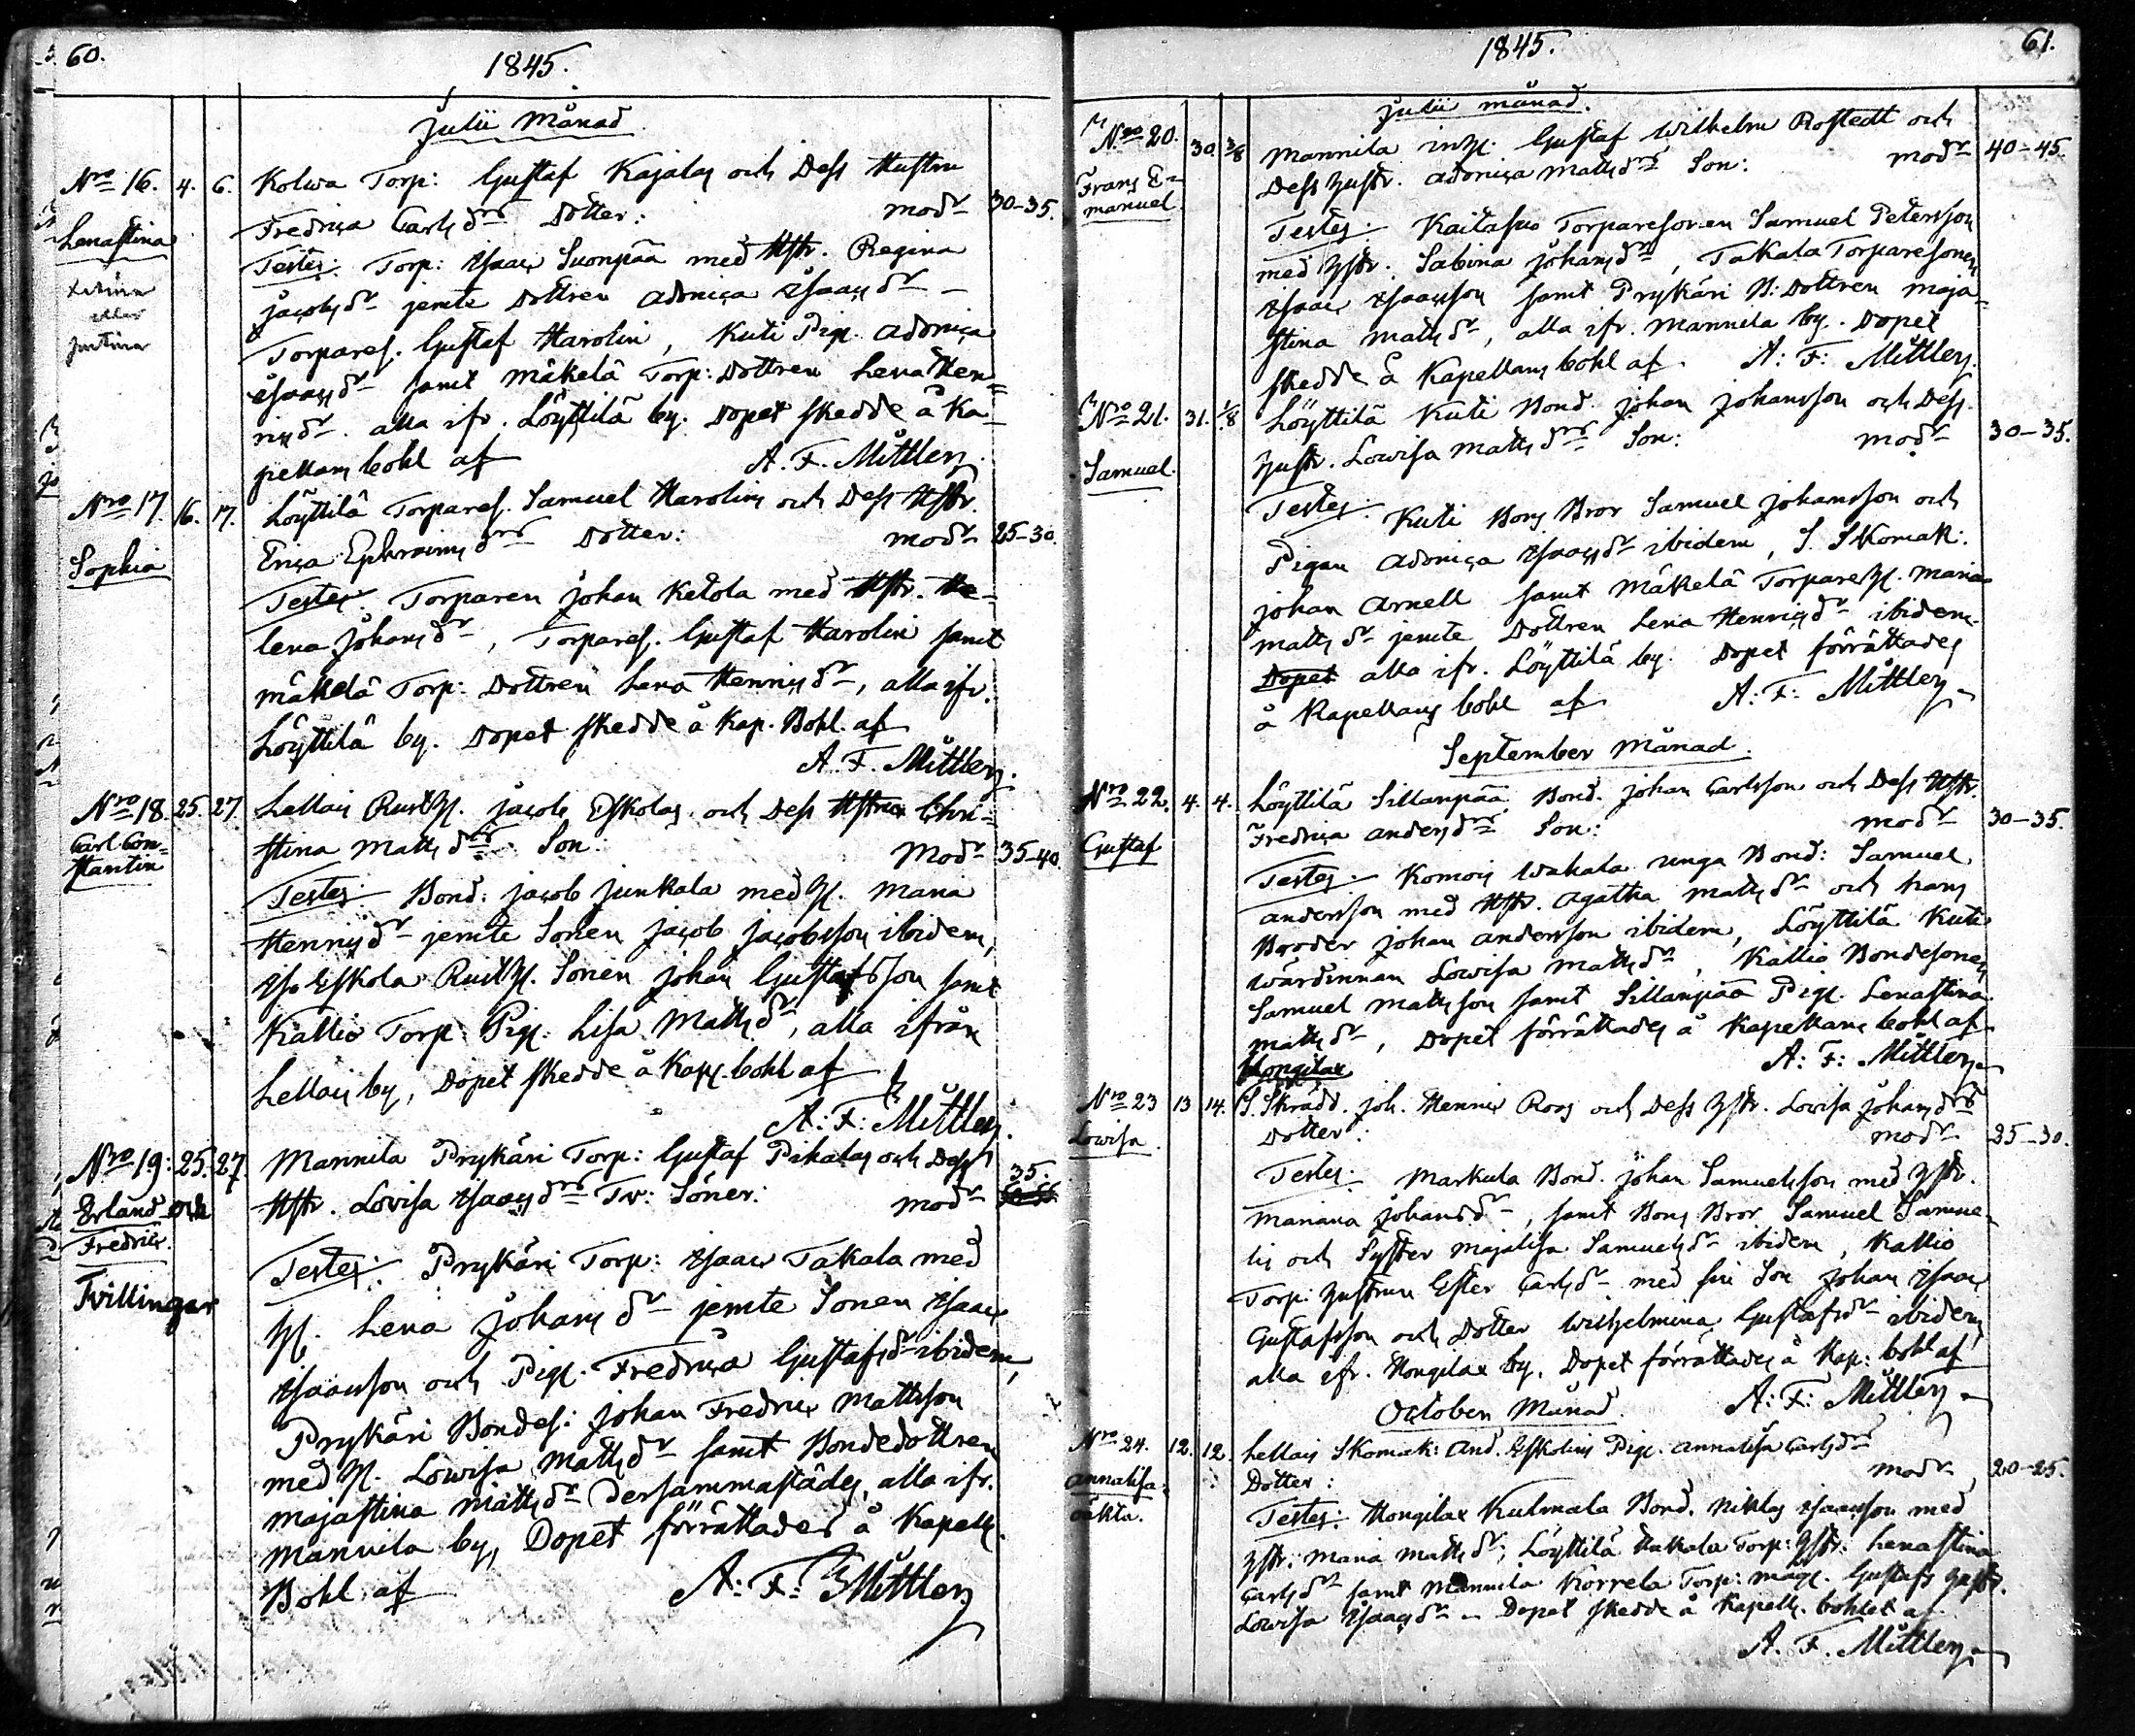 60.
1845.
Julii Månad
Nro 16. 4. 6. Kolwa Torp: Gustaf Kajalas och Dess Hustru
Lenastina
Fredrica Carlsdrs Dotter: modr 30-35.
Testes: Torp: Isaac Suonpää med Hstr. Regina
Jacobsdr jemte Dottren Adonica Isaacsdr
eller
Justina
Torpares. Gustaf Harolin, Kuti Pig. Adonica
Isaacsdr samt Mäkelä Torp: Dottren Lena Hen=
ricsdr. alla ifr. Löyttilä by. Dopet skedde å Ka-
pellans bohl af A. F. Mittler.
Nro 17. 16. 17. Löyttilä Torpares. Samuel Harolins och Dess Hstr.
Sophia
Erica Ephraimsdrs Dotter: modr 25-30.
Testes: Torparen Johan Ketola med Hstr. He-
lena Johansdr, Torpares. Gustaf Harolin samt
Mäkelä Torp: Dottren Lena Henricsdr, alla ifr.
Löyttilä by. Dopet skedde å Kap. Bohl af
A. F. Mittler.
Nro 18. 25. 27. Lellais Rusth. Jacob Eskolas och Dess Hstru Chri=
Carl Con=
stantin
stina Mattsdrs Son: Modr 35-40
Testes: Bond: Jacob Junkala med H. Maria
Henricsdr jemte Sonen Jacob Jacobsson ibidem,
Iso Eskola Rusth. Sonen Johan Gustafsson samt
Kallio Torp. Pig. Lisa Mattsdr, alla ifrån
Lellais by, Dopet skedde å Kap. bohl af
A: F: Mittler.
Nro 19: 25. 27. Mannila Prykäri Torp: Gustaf Pihalas och Dess
Erland och
Fredric.
Tvillingar
Hstr. Lovisa Isaacsdrs Tv: Söner: modr 35.
Testes: Prykäri Torp: Isaac Takala med
H. Lena Johansdr jemte Sonen Isaac
Isaacsson och Pig. Fredrica Gustafsdr ibidem,
Prykäri Bondes: Johan Fredric Mattsson
med H. Lovisa Mattsdr samt Bondedottren
Majastina Mattsdr dersammastädes, alla ifr.
Mannila by, Dopet förrättades å Kapells.
Bohl af A: F: Mittler
61.
1845.
Julii månad.
Nro 20. 30. 3/8 Mannila inh. Gustaf Wilhelm Rostedt och
Frans E=
manuel.
Dess Hustr. Adonica Mattsdrs Son: modr 40-45.
Testes: Kaitasuo Torparesonen Samuel Petersson
med Hstr. Sabina Johansdr, Takala Torparesonen
Isaac Isaacsson samt Prykäri B: Dottren Maja=
stina Mattsdr, alla ifr. Mannila by. Dopet
skedde å Kapellans bohl af A: F: Mittler.
Nro 21. 31. 1/8 Löyttilä Kuti Bond. Johan Johansson och Dess
Samuel.
Hustr. Lowisa Mattsdrs Son: modr 30-35.
Testes: Kuti Bons Bror Samuel Johansson och
Pigan Adonica Isaacsdr ibidem, S. Skomak:
Johan Arnell samt Mäkelä Torpareh. Maria
Mattsdr jemte Dottren Lena Henricsdr ibidem
Dopet alla ifr. Löyttilä by. Dopet förrättades
å Kapellans bohl af A: F: Mittler
September Månad.
Nro 22. 4. 4. Löyttilä Sillanpää Bond. Johan Carlsson och Dess Hstr.
Gustaf
Fredrica Andersdrs Son: modr 30-35.
Testes: Komois Wahala unga Bond: Samuel
Andersson med Hstr. Agatha Mattsdr och hans
Broder Johan Andersson ibidem, Löyttilä Kuti
wärdinnan Lowisa Mattsdr, Kallio Bondesonen
Samuel Mattsson samt Sillanpää Pig. Lenastina
Mattsdr, Dopet förrättades å Kapellans bohl af
Hongilax A: F: Mittler
Nro 23 13 14. S. Skrädd. Joh. Henric Roos och Dess Hstr. Lovisa Johansdrs
Lowisa
Dotter: modr 25-30.
Testes: Markula Bond. Johan Samuelsson med Hstr.
Mariana Johansdr, samt Bons Bror Samuel Samue-
lis och Syster Majalisa Samuelsdr ibidem, Kallio
Torp: Hustrun Ester Carlsdr med sin Son Johan Isaac
Gustafsson och Dotter Wilhelmina Gustafsdr ibidem,
alla ifr. Hongilax by, Dopet förrättades å Kap: bohl af
October Månad. A: F: Mittler
Nro 24. 12. 12. Lellais Skomak: And. Eskolins Pig. Annalisa Carlsdrs
Annalisa
oäkta.
Dotter: modr 20-25.
Testes: Hongilax Kulmala Bond. Niklas Isaacsson med
Hstr. Maria Mattsdr, Löyttilä Hakala Torp: Hstr. Lenastina
Carlsdr samt Mannila Korrela Torp: måg. Gustafs Hustr.
Lowisa Isaacsdr. Dopet skedde å Kapells. bohlet af
A. F. Mittler